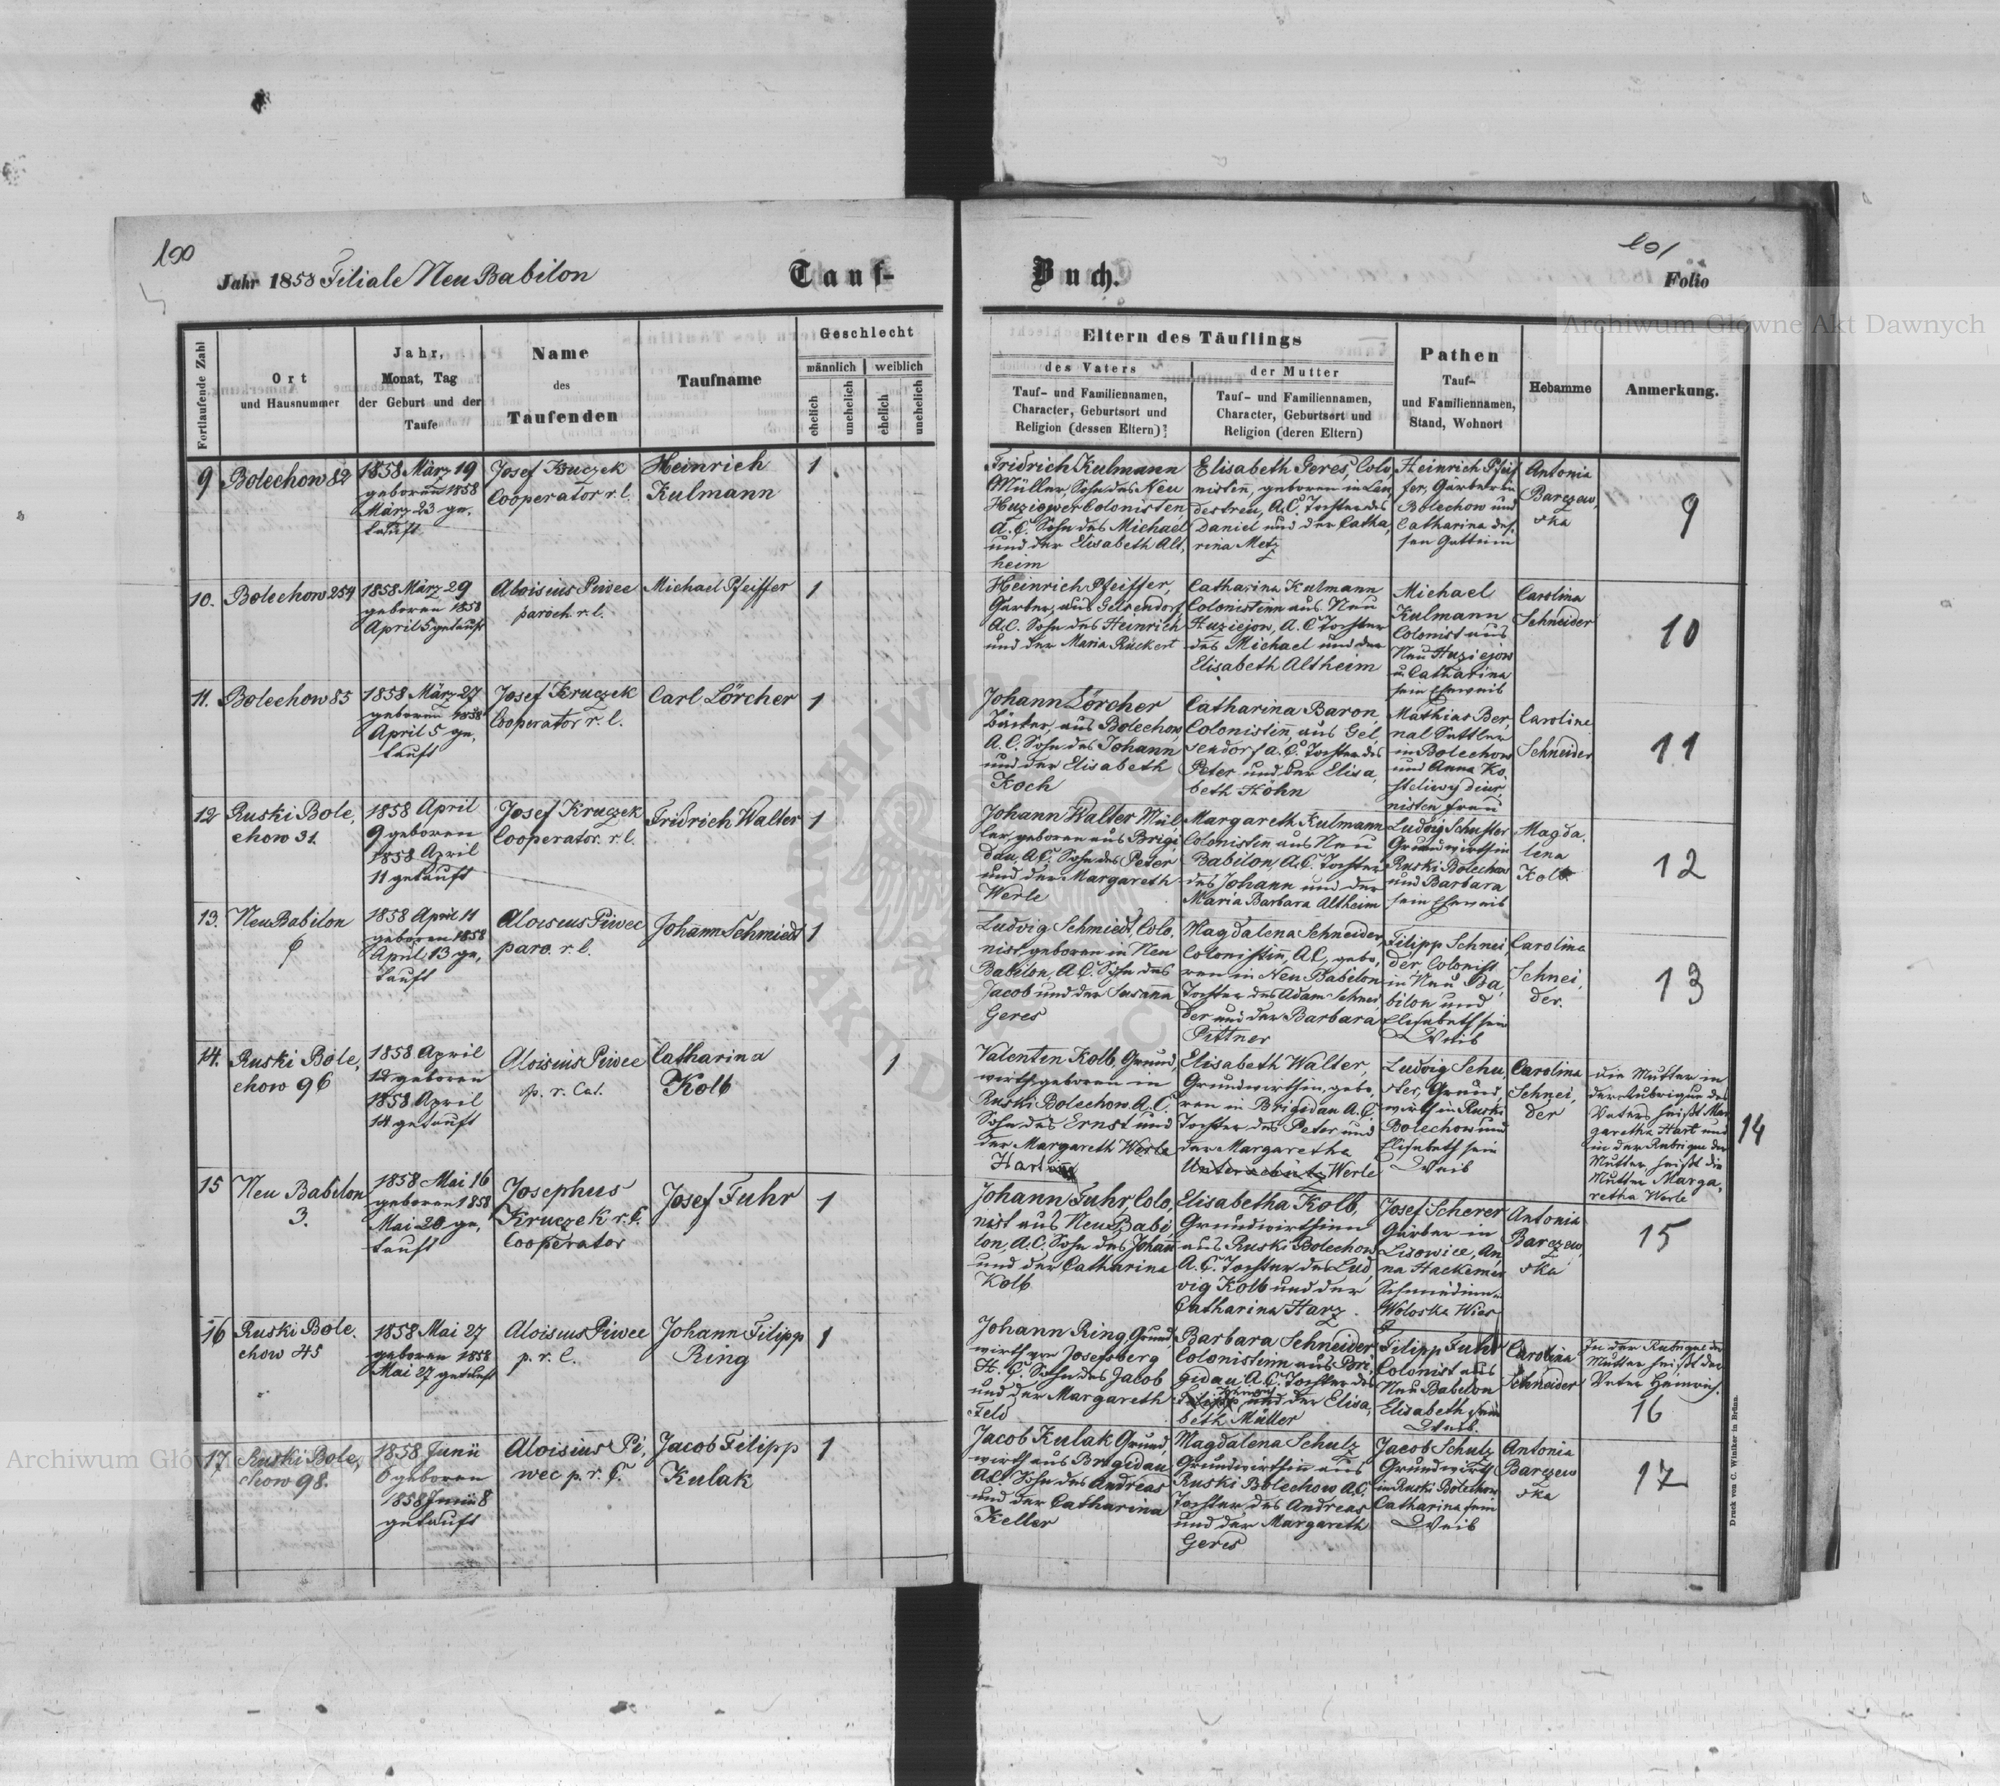 100
Jahr 1858 Filiale Neu Babilon
Tauf-
Buch.
101
Folio
Archiwum Główne Akt Dawnych
Fortlaufende Zahl
Ort
und Hausnummer
Jahr,
Monat, Tag
der Geburt und der
Taufe
Name
des
Taufenden
Taufname
Geschlecht
männlich
weiblich
ehelich
unehelich
ehelich
unehelich
Eltern des Täuflings
des Vaters
Tauf- und Familiennamen,
Character, Geburtsort und
Religion (dessen Eltern)
der Mutter
Tauf- und Familiennamen,
Character, Geburtsort und
Religion (deren Eltern)
Pathen
Tauf-
und Familiennamen,
Stand, Wohnort
Hebamme
Anmerkung.
9
Bolechow 82
1858 März 19
geboren 1858
März 23 ge,
tauft
Josef Kruczek
Cooperator r. l.
Heinrich
Kulmann
1
Fridrich Kulmann
Müller, Sohn des Neu
Huziejower Colonisten
A. C. Sohn des Michael
und der Elisabeth Alt,
heim
Elisabeth Geres, Colo
nistin, geboren in Lan
destreu, A.C. Tochter des
Daniel und der Catha,
rina Metz
Heinrich Pfeif
fer, Garber in
Bolechow und
Catharina des,
sen Gattinn
Antonia
Barczew,
ska
9
10.
Bolechow 254
1858 März 29
geboren 1858
April 5 getauft
Aloisius Piwec
paroch. r. l.
Michael Pfeiffer
1
Heinrich Pfeiffer,
Garber, aus Gelsendorf
A.C. Sohn des Heinrich
und der Maria Rückert
Catharina Kulmann
Colonistinn aus Neu
Huziejow, A. C. Tochter
des Michael und der
Elisabeth Altheim
Michael
Kulmann
Colonist aus
Neu Huziejow
u. Catharina
sein Eheweib
Carolina
Schneider
10
11.
Bolechow 85
1858 März 27
geboren 1858
April 5 ge,
tauft
Josef Kruczek
Cooperator r. l.
Carl Lörcher
1
Johann Lörcher
Bäcker, aus Bolechow
A. C. Sohn des Johann
und der Elisabeth
Koch
Catharina Baron,
Colonistin, aus Gel,
sendorf A. C. Tochter des
Peter und der Elisa,
beth Höhn
Mathias Ber,
nal Sattler
in Bolechow
und Anna Ko,
steliwy diur,
nisten frau
Caroline
Schneider
11
12
Ruski Bole,
chow 31.
1858 April
9 geboren
1858 April
11 getauft
Josef Kruczek
Cooperator. r. l.
Fridrich Walter
1
Johann Walter Mül
ler, geboren aus Brigi,
dau, A.C. Sohn des Peter
und der Margareth
Werle
Margareth Kulmann
Colonistin aus Neu
Babilon, A.C. Tochter
des Johann und der
Maria Barbara Altheim
Ludwig Schuster
Grundwirth in
Ruski Bolechow
und Barbara
sein Eheweib
Magda,
lena
Kolb
12
13.
Neu Babilon
1858 April 11
geboren 1858
April 13 ge,
tauft
Aloisius Piwec
paro. r. l.
Johann Schmiedt
1
Ludvig Schmiedt, Colo,
nist geboren in Neu
Babilon, A.C. Sohn des
Jacob und der Susanna
Geres
Magdalena Schneider,
Colonistin, A.C., gebo,
ren in Neu Babilon
Tochter des Adam Schnei
der und der Barbara,
Pittner
Filipp Schnei,
der Colonist
in Neu Ba,
bilon und
Elisabeth sein
Weib
Carolina
Schnei,
der.
13
14.
Ruski Bole,
chow 96
1858 April
12 geboren
1858 April
14 getauft
Aloisius Piwec
p. r. Cat.
Catharina
Kolb
1
Valentin Kolb, Grund,
wirth, geboren in
Ruski Bolechow. A. C.
Sohn des Ernst und
der Margareth Werle
Hart
Elisabeth Walter,
Grundwirthin, gebo,
ren in Brigidau A. C.
Tochter des Peter und
der Margaretha
Werle
Ludvig Schu,
ster, Grund,
wirth in Ruski
Bolechow und
Elisabeth sein
Weib
Carolina
Schnei,
der
die Mutter in
der Rubrique des
Vaters heißt Mar
garetha Hart und
in der Rubrique der
Mutter heißt die
Mutter Marga,
retha Werle
14
15
Neu Babilon
3.
1858 Mai 16
geboren 1858
Mai 20 ge,
tauft
Josephus
Kruczek r. C.
Cooperator
Josef Fuhr
1
Johann Fuhr, Colo,
nist aus Neu Babi,
lon, A.C. Sohn des Johann
und der Catharina
Kolb
Elisabetha Kolb,
Grundwirthinn
aus Ruski Bolechow
A. C. Tochter des Lud
vig Kolb und der
Catharina Harz.
Josef Scherer
Gärber in
Lisowice, An,
na Hackemer
Schmiedinn in
Woloska Wies
Antonia
Barczew,
ska
15
16
Ruski Bole.
chow 45
1858 Mai 27
geboren 1858
Mai 27 getauft
Aloisius Piwec
p. r. C.
Johann Filipp
Ring
1
Johann Ring, Grund,
wirth von Josefsberg
H. C. Sohn des Jacob
und der Margareth
Feld
Barbara Schneider
Colonistinn aus Bri,
gidau A.C. Tochter des
Filipp Heinrich und der Elisa,
beth Müller
Filipp Fuhr
Colonist aus
Neu Babilon
Elisabeth sein
Weib.
Carolina
Schneider
In der Rubrique der
Mutter heißt der
Vater Heinrich.
16
17
Ruski Bole,
chow 98.
1858 Junii
6 geboren
1858 Junii 8
getauft
Aloisius Pi,
wec p. r. C.
Jacob Filipp
Kulak
1
Jacob Kulak Grund,
wirth aus Brigidau,
A.C. Sohn des Andreas
und der Catharina
Keller
Magdalena Schulz
Grundwirthin aus
Ruski Bolechow A.C.
Tochter des Andreas
und der Margareth
Geres
Jacob Schulz
Grundwirth
in Ruski Bolechow
Catharina sein
Weib
Antonia
Barczew
ska
17
Druck von C. Winiker in Brünn.